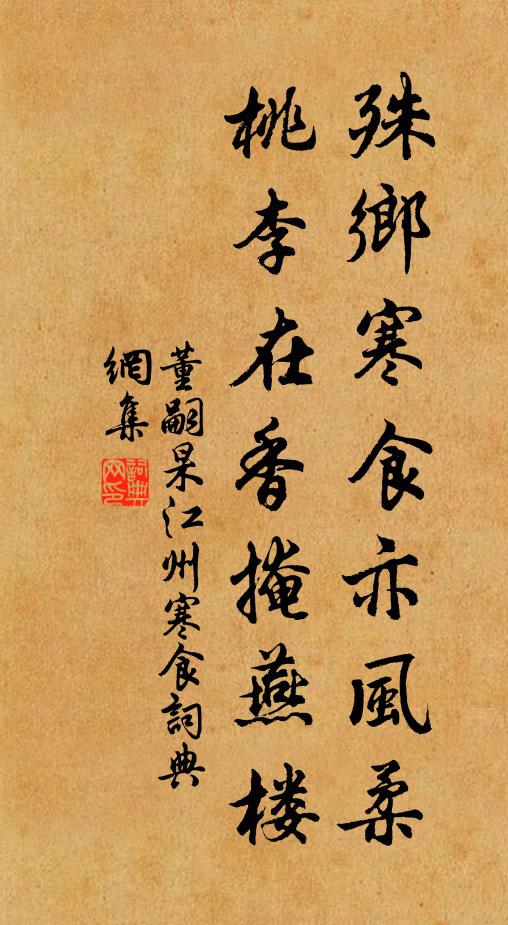 殊鄉寒食亦風柔
桃李在香掩燕楼
董嗣杲江州寒食詞典
網集
詞典
网印